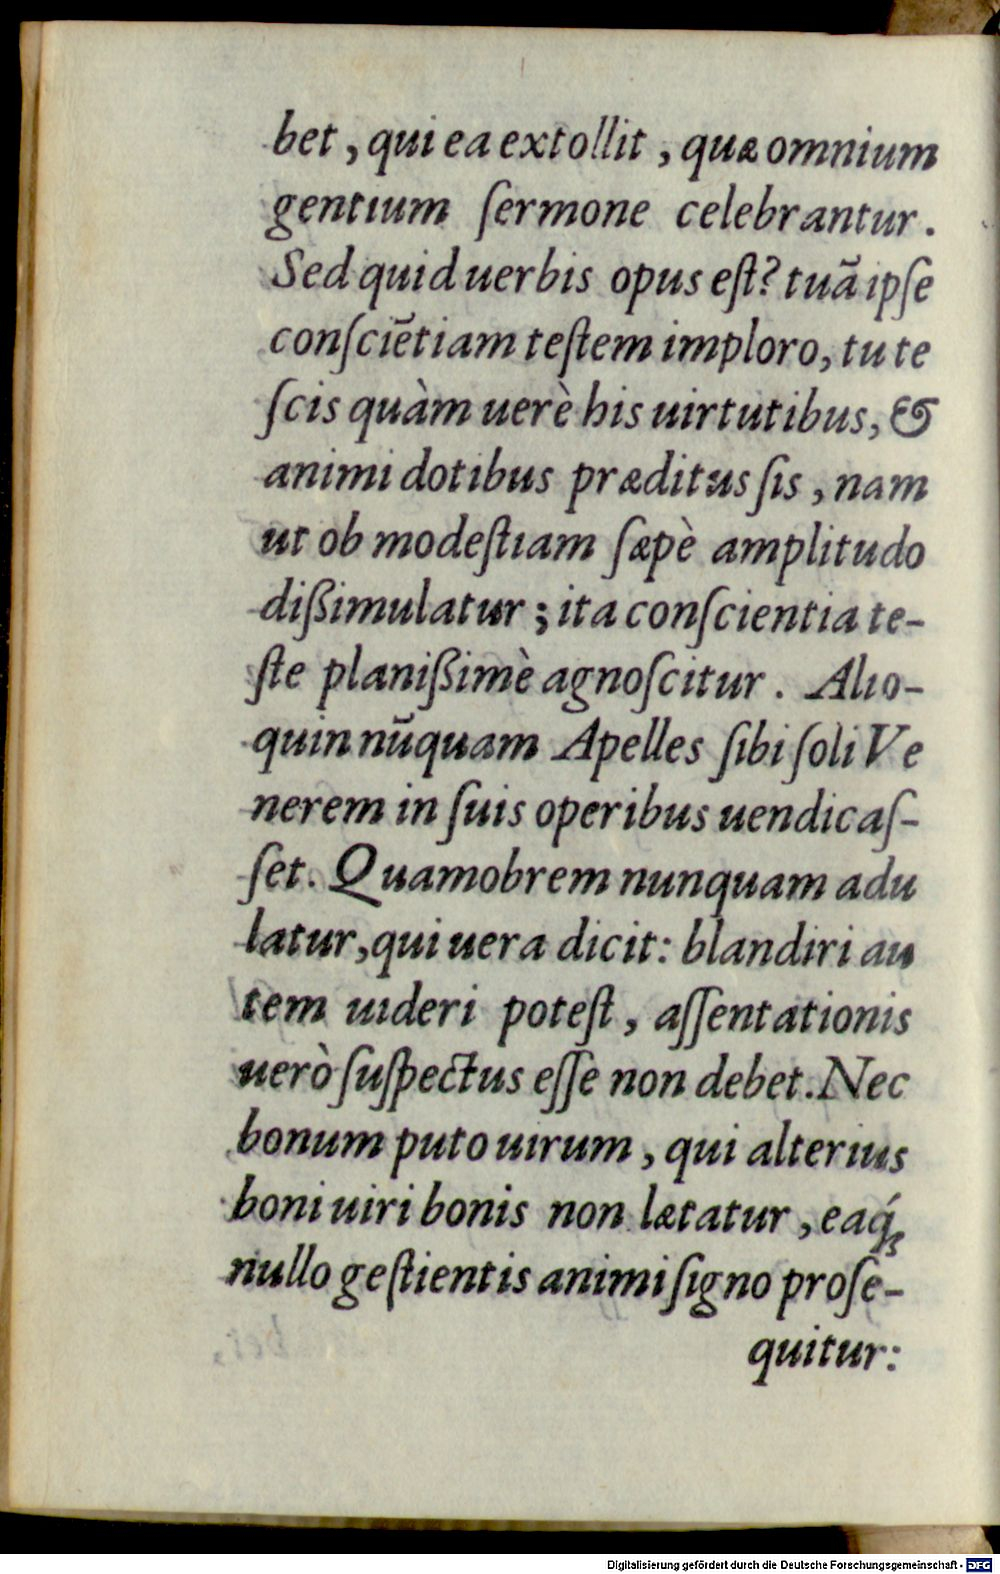 bet, qui ea extollit, quæ omnium
gentium ſermone celebrantur.
Sed quid uerbis opus eſt? tuã ipſe
conſciẽtiam teſtem imploro, tu te
ſcis quàm uerè his uirtutibus, &
animi dotibus præditus ſis, nam
ut ob modeſtiam ſæpè amplitudo
dißimulatur; ita conſcientia te-
ſte planißimè agnoſcitur. Alio-
quin nũquam Apelles ſibi ſoli Ve
nerem in ſuis operibus uendicaſ-
ſet. Quamobrem nunquam adu
latur, qui uera dicit: blandiri au
tem uideri poteſt, aſſentationis
uerò ſuſpectus eſſe non debet. Nec
bonum puto uirum, qui alterius
boni uiri bonis non lætatur, eaq́;
nullo geſtientis animi ſigno proſe-
quitur:
Digitalisierung gefördert durch die Deutsche Forschungsgemeinschaft - DFG